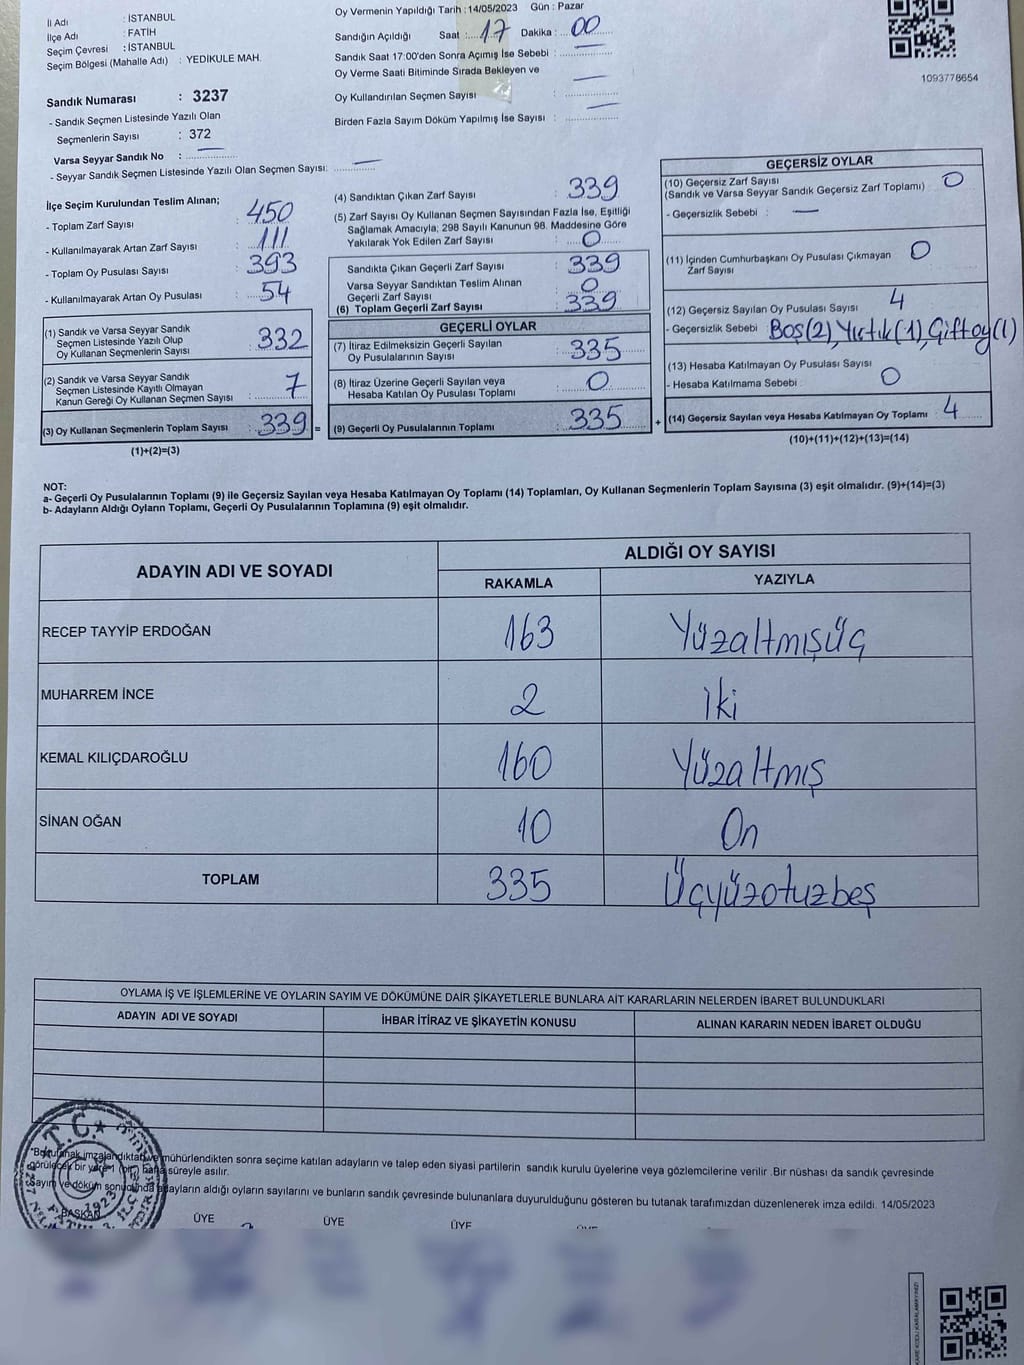 İl Adı : İSTANBUL
İlçe Adı : FATİH
Seçim Çevresi : İSTANBUL
Seçim Bölgesi (Mahalle Adı) : YEDIKULE MAH.
Sandık Numarası : 3237
- Sandık Seçmen Listesinde Yazılı Olan
Seçmenlerin Sayısı : 372
Varsa Seyyar Sandık No : —
- Seyyar Sandık Seçmen Listesinde Yazılı Olan Seçmen Sayısı: —
Oy Vermenin Yapıldığı Tarih : 14/05/2023 Gün : Pazar
Sandığın Açıldığı Saat : 17 Dakika : 00
Sandık Saat 17:00'den Sonra Açımış İse Sebebi : —
Oy Verme Saati Bitiminde Sırada Bekleyen ve
Oy Kullandırılan Seçmen Sayısı : —
Birden Fazla Sayım Döküm Yapılmış İse Sayısı : —
1093778654
İlçe Seçim Kurulundan Teslim Alınan;
- Toplam Zarf Sayısı : 450
- Kullanılmayarak Artan Zarf Sayısı : 111
- Toplam Oy Pusulası Sayısı : 393
- Kullanılmayarak Artan Oy Pusulası : 54
(1) Sandık ve Varsa Seyyar Sandık
Seçmen Listesinde Yazılı Olup
Oy Kullanan Seçmenlerin Sayısı : 332
(2) Sandık ve Varsa Seyyar Sandık
Seçmen Listesinde Kayıtlı Olmayan
Kanun Gereği Oy Kullanan Seçmen Sayısı : 7
(3) Oy Kullanan Seçmenlerin Toplam Sayısı : 339 =
(1)+(2)=(3)
(4) Sandıktan Çıkan Zarf Sayısı : 339
(5) Zarf Sayısı Oy Kullanan Seçmen Sayısından Fazla İse, Eşitliği
Sağlamak Amacıyla; 298 Sayılı Kanunun 98. Maddesine Göre
Yakılarak Yok Edilen Zarf Sayısı : 0
Sandıkta Çıkan Geçerli Zarf Sayısı : 339
Varsa Seyyar Sandıktan Teslim Alınan
Geçerli Zarf Sayısı : 0
(6) Toplam Geçerli Zarf Sayısı : 339
GEÇERLİ OYLAR
(7) İtiraz Edilmeksizin Geçerli Sayılan
Oy Pusulalarının Sayısı : 335
(8) İtiraz Üzerine Geçerli Sayılan veya
Hesaba Katılan Oy Pusulası Toplamı : 0
(9) Geçerli Oy Pusulalarının Toplamı : 335 +
GEÇERSİZ OYLAR
(10) Geçersiz Zarf Sayısı : 0
(Sandık ve Varsa Seyyar Sandık Geçersiz Zarf Toplamı)
- Geçersizlik Sebebi : —
(11) İçinden Cumhurbaşkanı Oy Pusulası Çıkmayan
Zarf Sayısı : 0
(12) Geçersiz Sayılan Oy Pusulası Sayısı : 4
- Geçersizlik Sebebi : Boş(2), Yırtık(1), Çift oy(1)
(13) Hesaba Katılmayan Oy Pusulası Sayısı : 0
- Hesaba Katılmama Sebebi :
(14) Geçersiz Sayılan veya Hesaba Katılmayan Oy Toplamı : 4
(10)+(11)+(12)+(13)=(14)
NOT:
a- Geçerli Oy Pusulalarının Toplamı (9) ile Geçersiz Sayılan veya Hesaba Katılmayan Oy Toplamı (14) Toplamları, Oy Kullanan Seçmenlerin Toplam Sayısına (3) eşit olmalıdır. (9)+(14)=(3)
b- Adayların Aldığı Oyların Toplamı, Geçerli Oy Pusulalarının Toplamına (9) eşit olmalıdır.
ADAYIN ADI VE SOYADI
ALDIĞI OY SAYISI
RAKAMLA YAZIYLA
RECEP TAYYİP ERDOĞAN 163 Yüzaltmışüç
MUHARREM İNCE 2 İki
KEMAL KILIÇDAROĞLU 160 Yüzaltmış
SİNAN OĞAN 10 On
TOPLAM 335 Üçyüzotuzbeş
OYLAMA İŞ VE İŞLEMLERİNE VE OYLARIN SAYIM VE DÖKÜMÜNE DAİR ŞİKAYETLERLE BUNLARA AİT KARARLARIN NELERDEN İBARET BULUNDUKLARI
ADAYIN ADI VE SOYADI İHBAR İTİRAZ VE ŞİKAYETİN KONUSU ALINAN KARARIN NEDEN İBARET OLDUĞU
*Bu tutanak imzalandıktan ve mühürlendikten sonra seçime katılan adayların ve talep eden siyasi partilerin sandık kurulu üyelerine veya gözlemcilerine verilir .Bir nüshası da sandık çevresinde
görülecek bir yere 1 (bir) hafta süreyle asılır.
Sayım ve döküm sonucunda adayların aldığı oyların sayılarını ve bunların sandık çevresinde bulunanlara duyurulduğunu gösteren bu tutanak tarafımızdan düzenlenerek imza edildi. 14/05/2023
BAŞKAN ÜYE ÜYE ÜYE
T.C.
1923